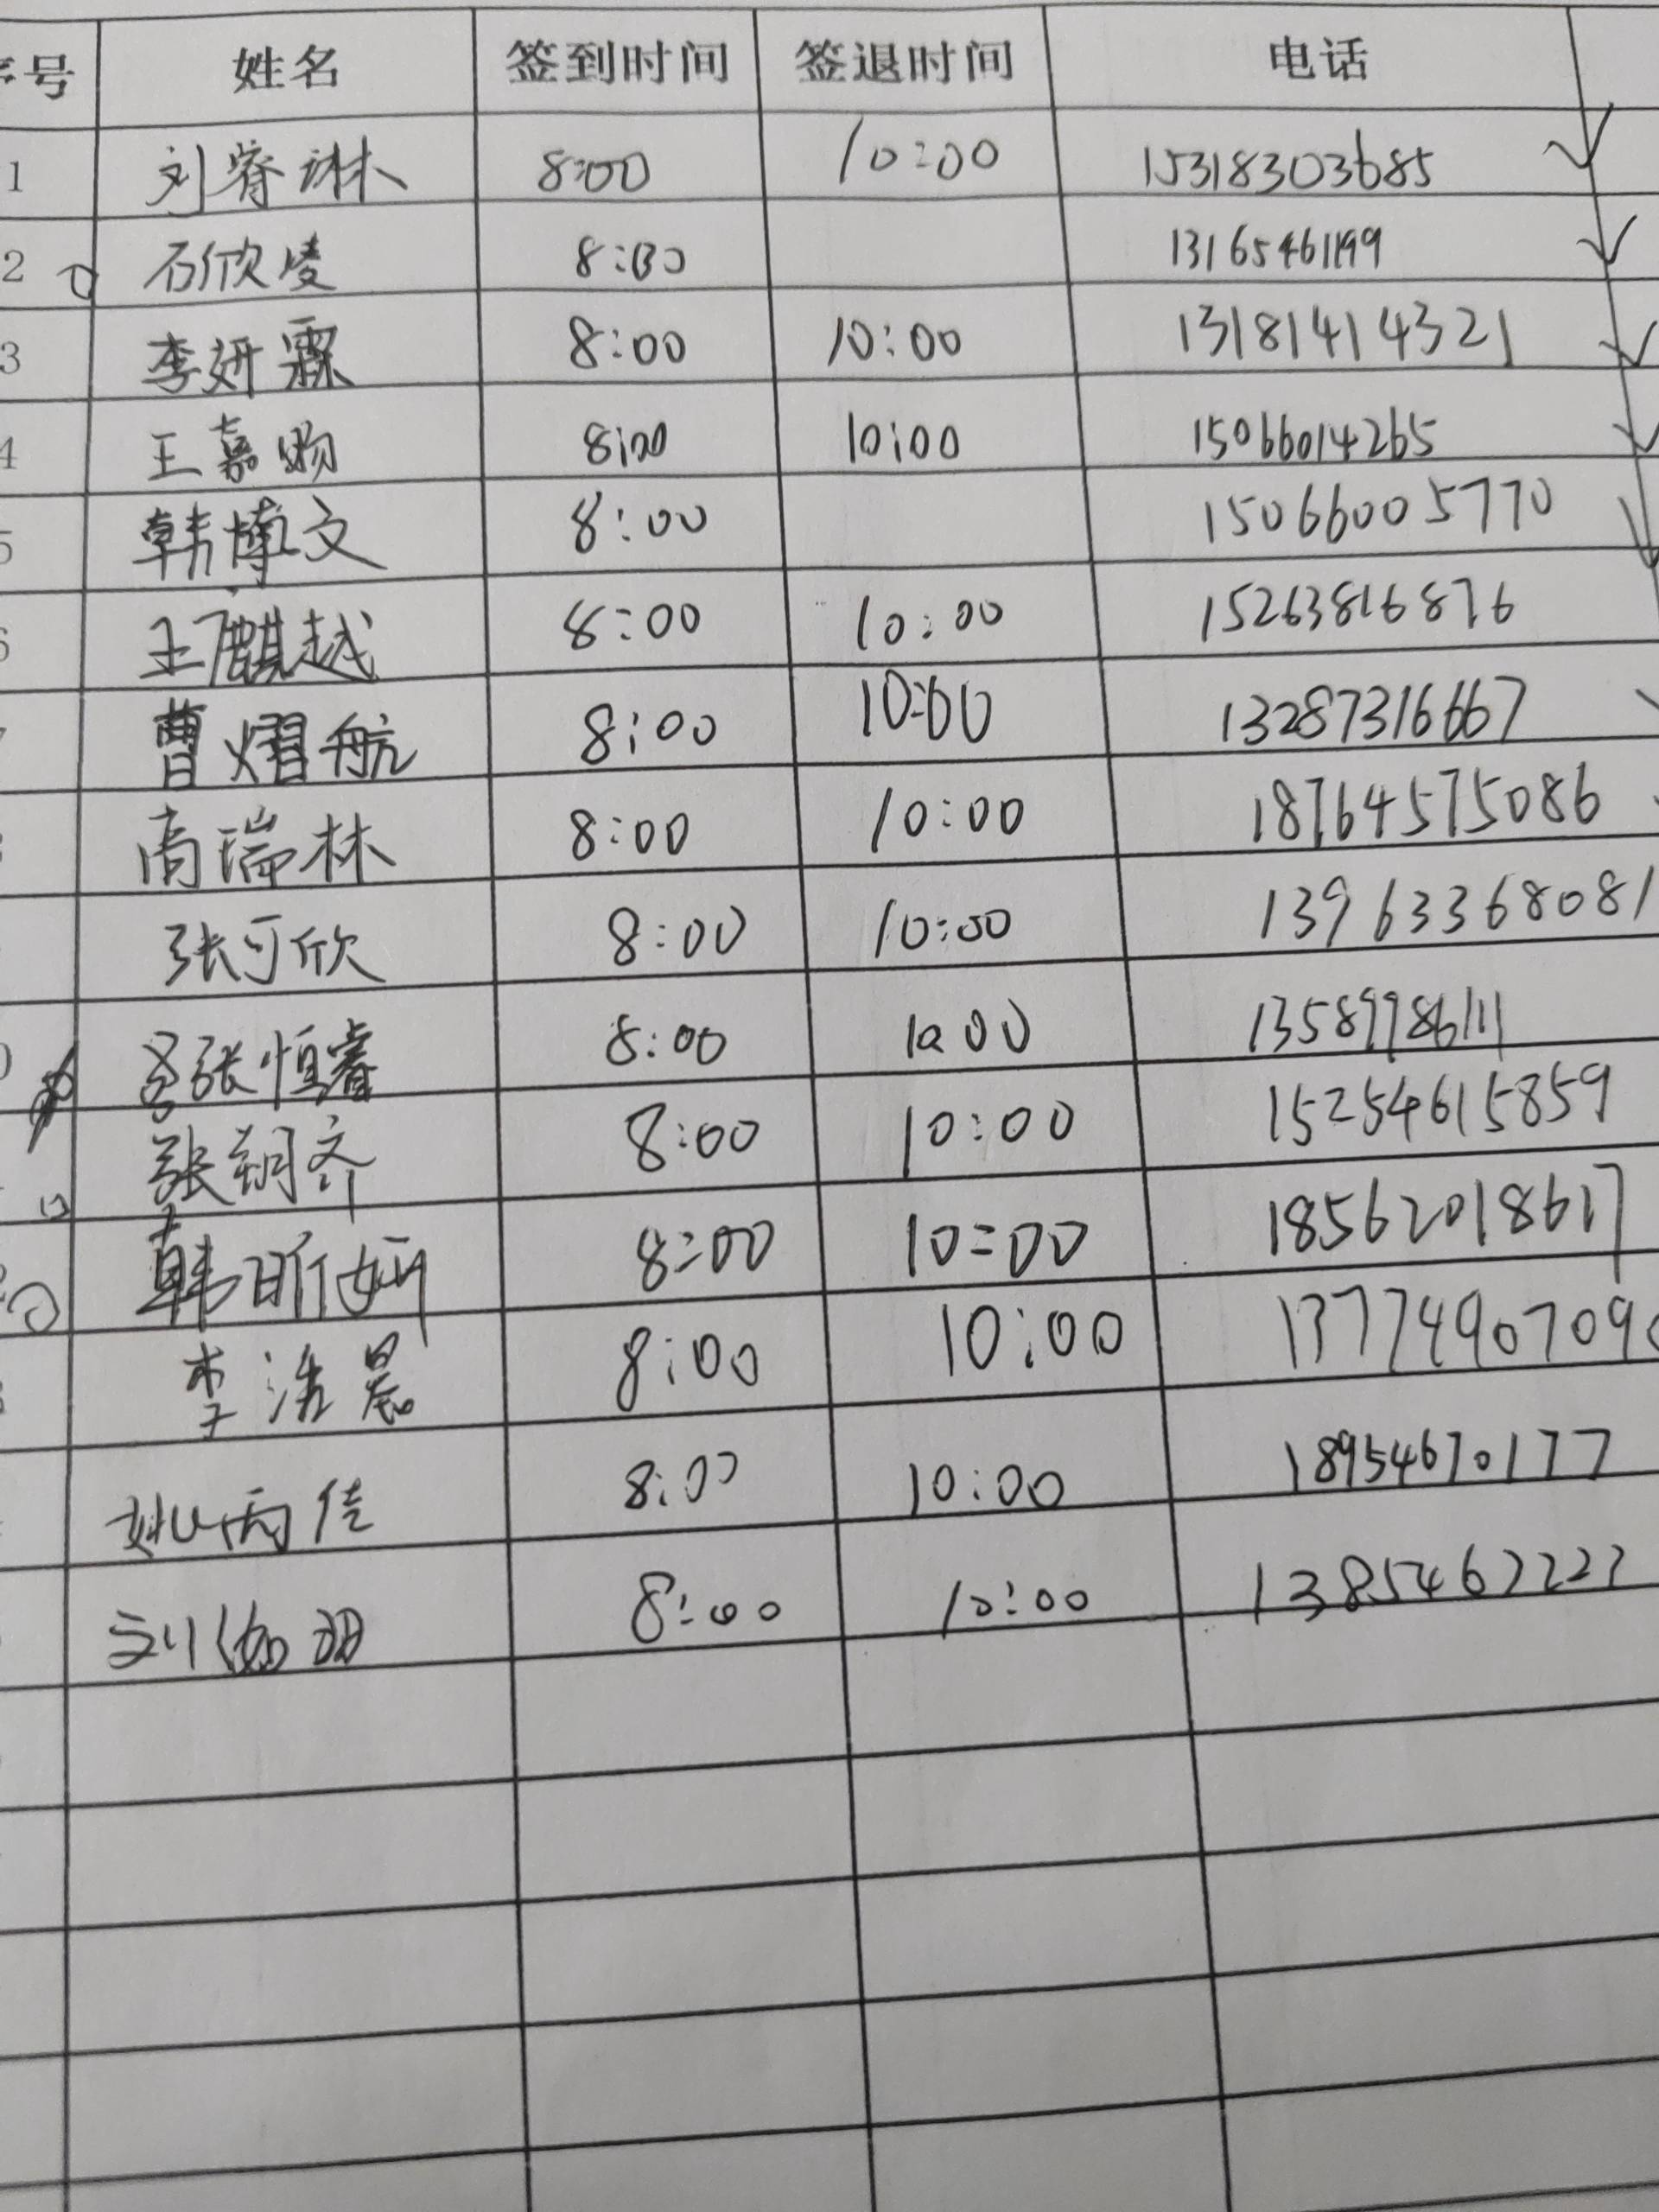 序号 姓名 签到时间 签退时间 电话
1 刘睿淋 8:00 10:00 15318303685
2 石欣凌 8:00 13165461199
3 李妍霖 8:00 10:00 13181414321
4 王嘉 8:00 10:00 15066014265
5 韩博文 8:00 15066005770
6 王麒越 8:00 10:00 15263816876
曹熠航 8:00 10:00 13287316667
高瑞林 8:00 10:00 18764575086
张可欣 8:00 10:00 13963368081
张恒睿 8:00 10:00 13589986111
张朔齐 8:00 10:00 15254615859
韩昕妍 8:00 10:00 18562018617
李浩晨 8:00 10:00 1377490709
姚丙佳 8:00 10:00 18954670177
刘 8:00 10:00 13854672223